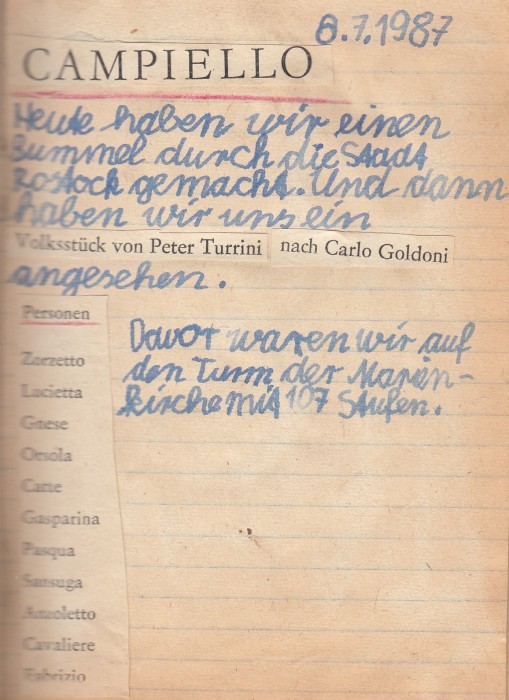 8.7.1987
CAMPIELLO
Heute haben wir einen
Bummel durch die Stadt
Rostock gemacht. Und dann
haben wir uns ein
Volksstück von Peter Turrini nach Carlo Goldoni
angesehen.
Personen
Zorzetto
Lucietta
Gnese
Orsola
Catte
Gasparina
Pasqua
Sansuga
Anzoletto
Cavaliere
Fabrizio
Davor waren wir auf
den Turm der Marien-
kirche mit 107 Stufen.